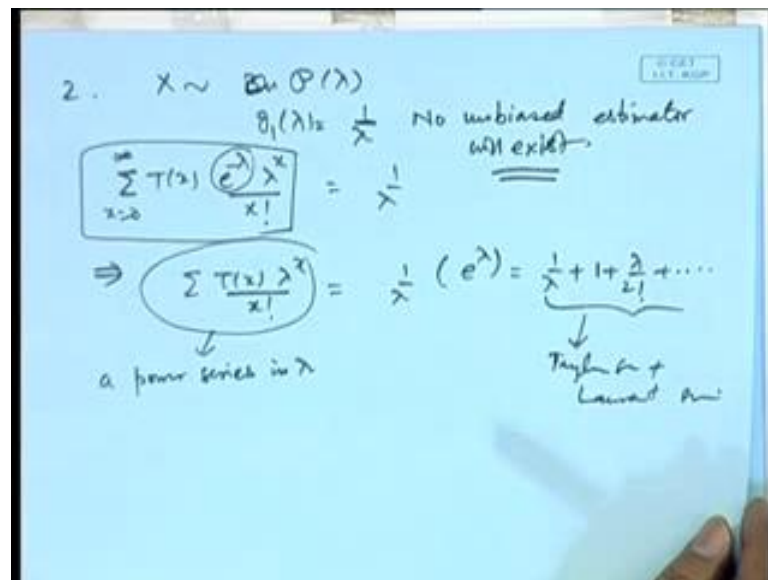 2. X ~ P(λ)
g₁(λ) = 1/λ No unbiased estimator
will exist.
∑_{x=0}^{∞} T(x) e^{-λ} λ^x / x! = 1/λ
⇒ ∑ T(x) λ^x / x! = 1/λ (e^λ) = 1/λ + 1 + λ/2! + ....
a power series in λ
Taylor +
Laurent